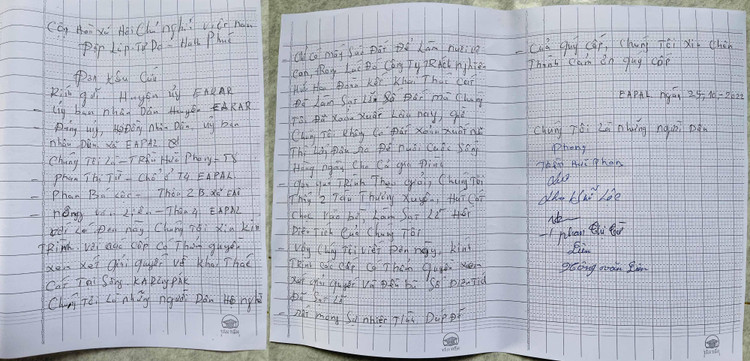 Cộng Hòa Xã Hội Chủ Nghĩa Việt Nam
Độc Lập - Tự Do - Hạnh Phúc
Đơn Kêu Cứu
Kính gửi Huyện ủy EAKAR
- Ủy ban nhân Dân Huyện EAKAR
- Đảng ủy, Hội Đồng Nhân Dân, ủy ban
nhân Dân xã EAPAL
Chúng Tôi Là - Trần Hữu Phong - T5
- Phan Thị Tứ - chỗ ở T4 EAPAL
- Phan Bá Lộc - Thôn 2B. xã
- nông văn Liên - Thôn 4 EAPAL
với Lá Đơn này Chúng Tôi Xin Kín
Trình. với các Cấp Có Thẩm quyền
xem xét giải quyết về Khai Thác
Cát Tại Sông KARôngPắk
Chúng Tôi Là những người Dân Hộ nghè
- Chỉ Có mấy Sào Đất Để Làm nuôi
Con, Trong Lúc Đó Công Ty Trách nghiệm
Hữu Hạn Khai Thác Cát
Đã Làm Sạt Lở Số Đất mà Chúng
Tôi Đã Xoản Xuất Lâu nay,
Chúng Tôi Không Có Đất Xoản Xuất nữa
Thì Lấy Đâu ra Để nuôi Cuộc Sống
Hàng ngày Cho Cả gia Đình
- Qua quá Trình Theo giỏi, Chúng Tôi
Thấy 2 Tàu Thường Xuyên, Hút Cát
Làm Sạt Lở Hết
Diện Tích Của Chúng Tôi
- Vậy Chúng Tôi viết Đơn này, Kính
Trình Các Cấp Có Thẩm Quyền xem
xét giải quyết Và Đền bù Số Diện Tích
Đã Sạt Lở
- Rất mong Sự nhiệt Tình Dúp Đỡ
- Của Quý Cấp, Chúng Tôi Xin Chân
Thành Cảm ơn quý cấp
EAPAL ngày 25, 10 - 2021
Chúng Tôi Là những người Dân
Phong
Trần Hữu Phong
Lộc
Phan Bá Lộc
- phan Thị Tứ
Liên
Nông văn Liên